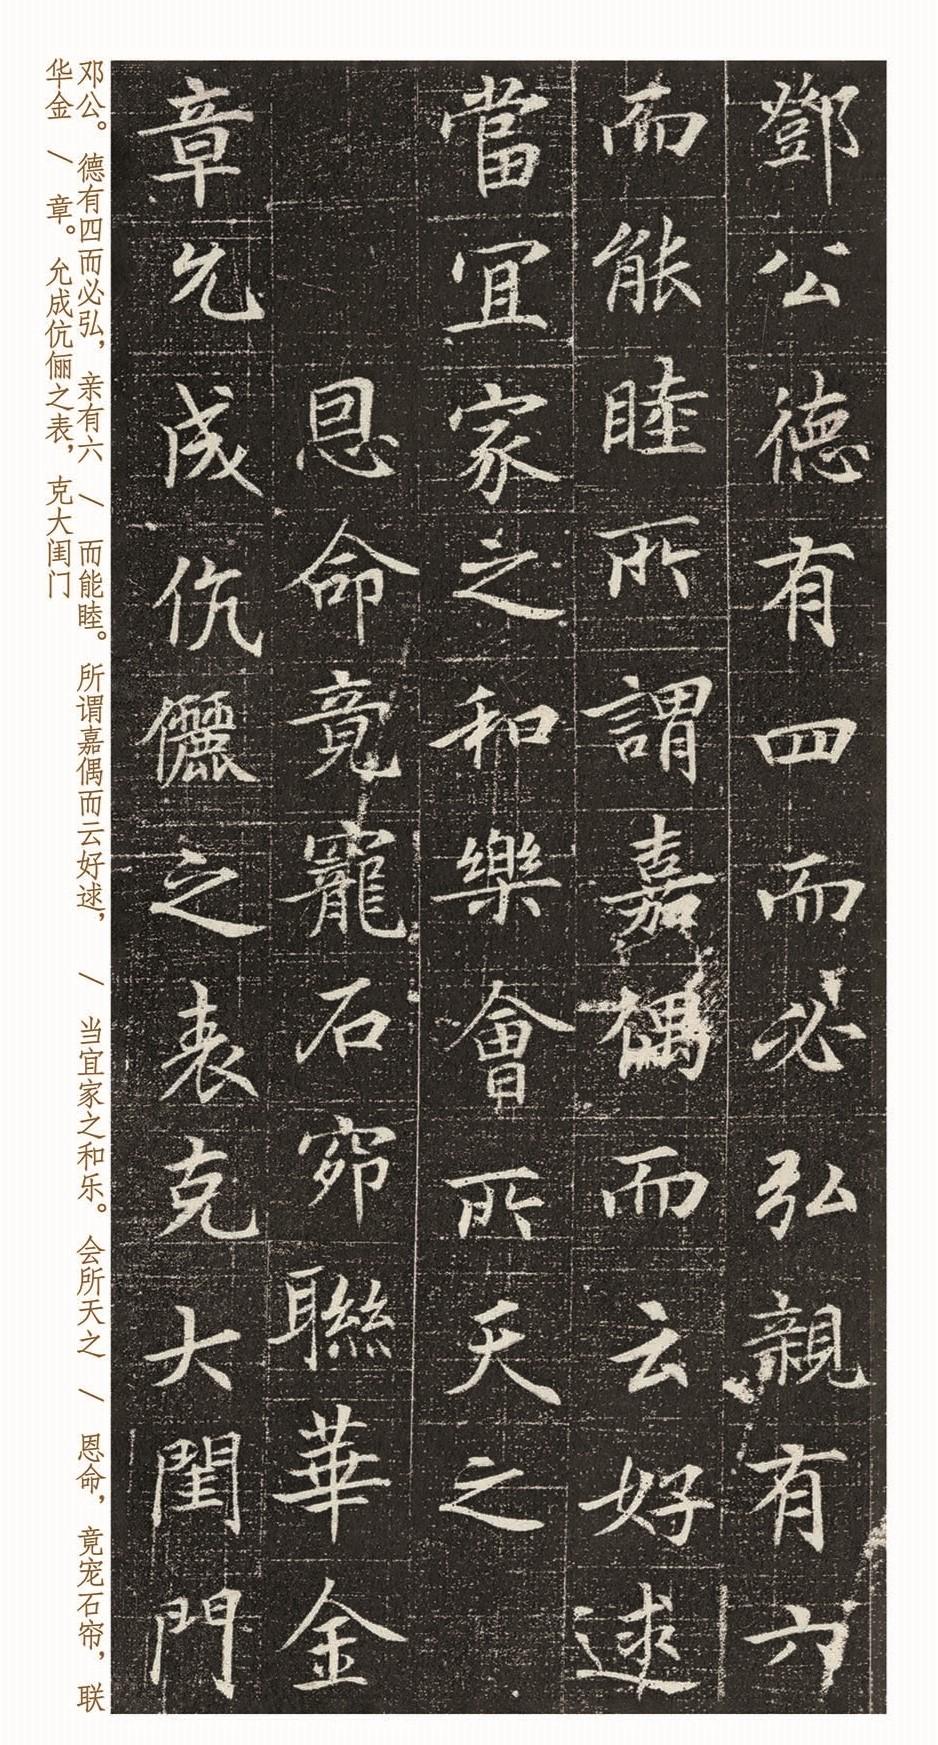 鄧公德有四而必弘親有六
而能睦所謂嘉耦而云好逑
當宜家之和樂會所天之
恩命竟寵石窌聯華金
章允成伉儷之表克大閨門
邓公。德有四而必弘，亲有六 / 而能睦。所谓嘉偶而云好逑， / 当宜家之和乐。会所天之 / 恩命，竟宠石帘，联
华金 / 章。允成伉俪之表，克大闺门